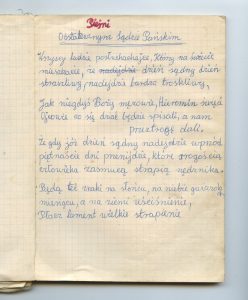 Pieśni
O ostatecznym Sądzie Pańskim
Wszyscy ludzie posłuchajcie, Którzy na świecie
mieszkacie, że nadejdzie dzień sądny dzień
straszliwy, nadejdzie bardzo troskliwy,
Jak niegdyś Boży mężowie, Hieronim święty
dnie się znać będzie spisali, a nam
przestrogę dali.
Że gdy już dzień sądny nadejdzie wprzód
piętnaście dni przeijdzie, które
człowieka zasmucą strapią nędznika.
Będą też znaki na słońcu, na niebie gwiazdy
miesiącu, a na ziemi uciśnienie,
Płacz lament wielkie strapienie